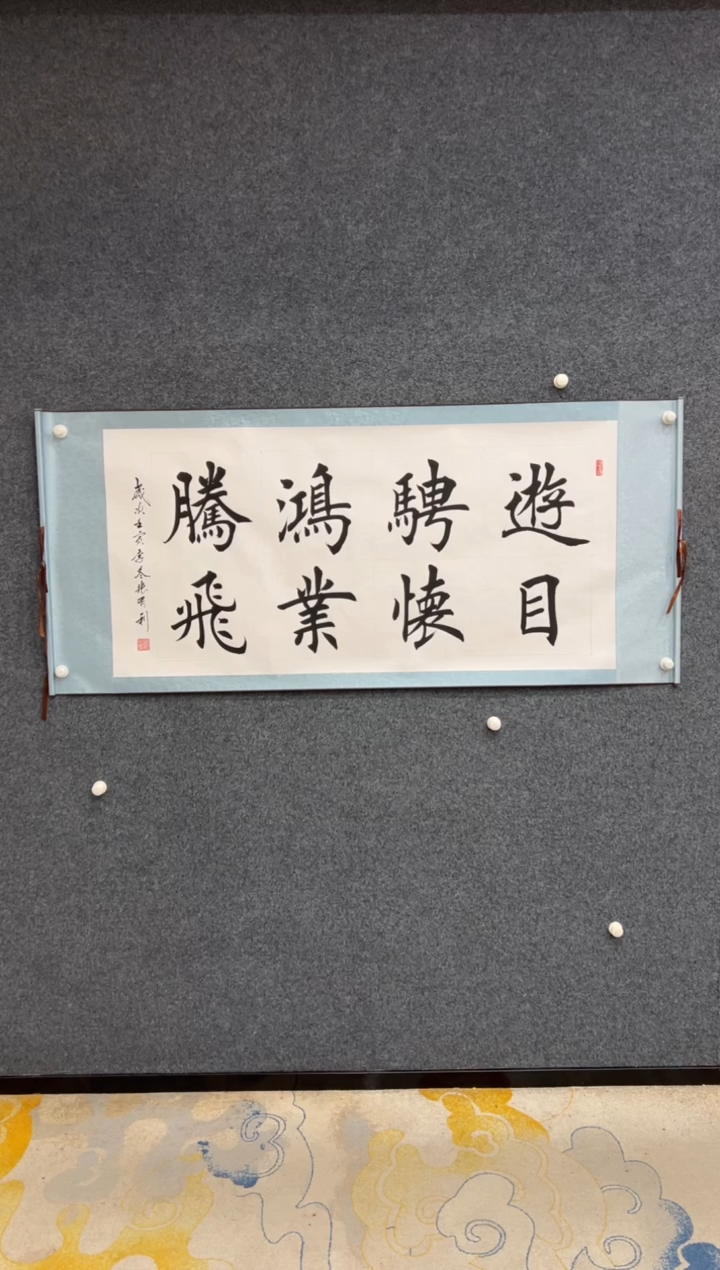 遊目
騁懷
鴻業
騰飛
歲次壬寅季冬